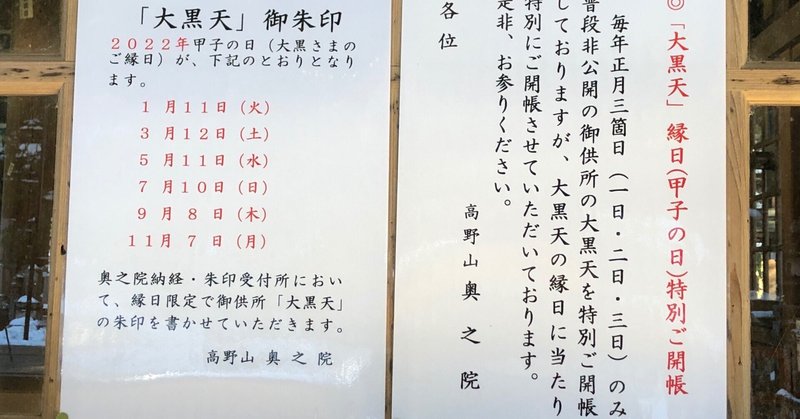 「大黒天」御朱印
２０２２年甲子の日（大黒さまの
ご縁日）が、下記のとおりとなり
ます。
１月１１日（火）
３月１２日（土）
５月１１日（水）
７月１０日（日）
９月８日（木）
11月７日（月）
奥之院納経・朱印受付所におい
て、縁日限定で御供所「大黒天」
の朱印を書かせていただきます。
高野山奥之院
◎「大黒天」縁日（甲子の日）特別ご開帳
毎年正月三箇日（一日・二日・三日）のみ
普段非公開の御供所の大黒天を特別ご開帳
しておりますが、大黒天の縁日に当たり
特別にご開帳させていただいております。
是非、お参りください。
高野山奥之院
各位